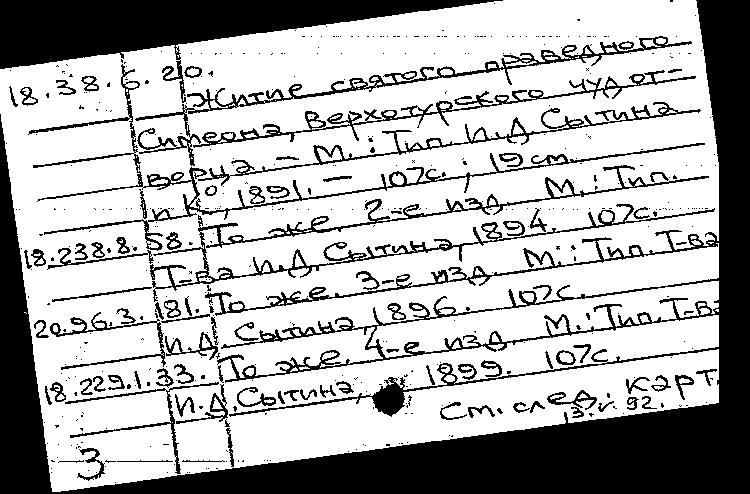 18.38.6.20.
Житие святого праведного
Симеона, Верхотурского чудот-
ворца. – М.: Тип. И.Д. Сытина
и К°, 1891. – 107с.; 19 см.
18.238.8.58. То же. 2-е изд. М.: Тип.
Т-ва И.Д. Сытина, 1894. 107с.
20.96.3.181. То же. 3-е изд. М.: Тип. Т-ва
И.Д. Сытина, 1896. 107с.
18.229.1.33. То же. 4-е изд. М.: Тип. Т-ва
И.Д. Сытина, 1899. 107с.
См. след. карт.
13.V.92.
3